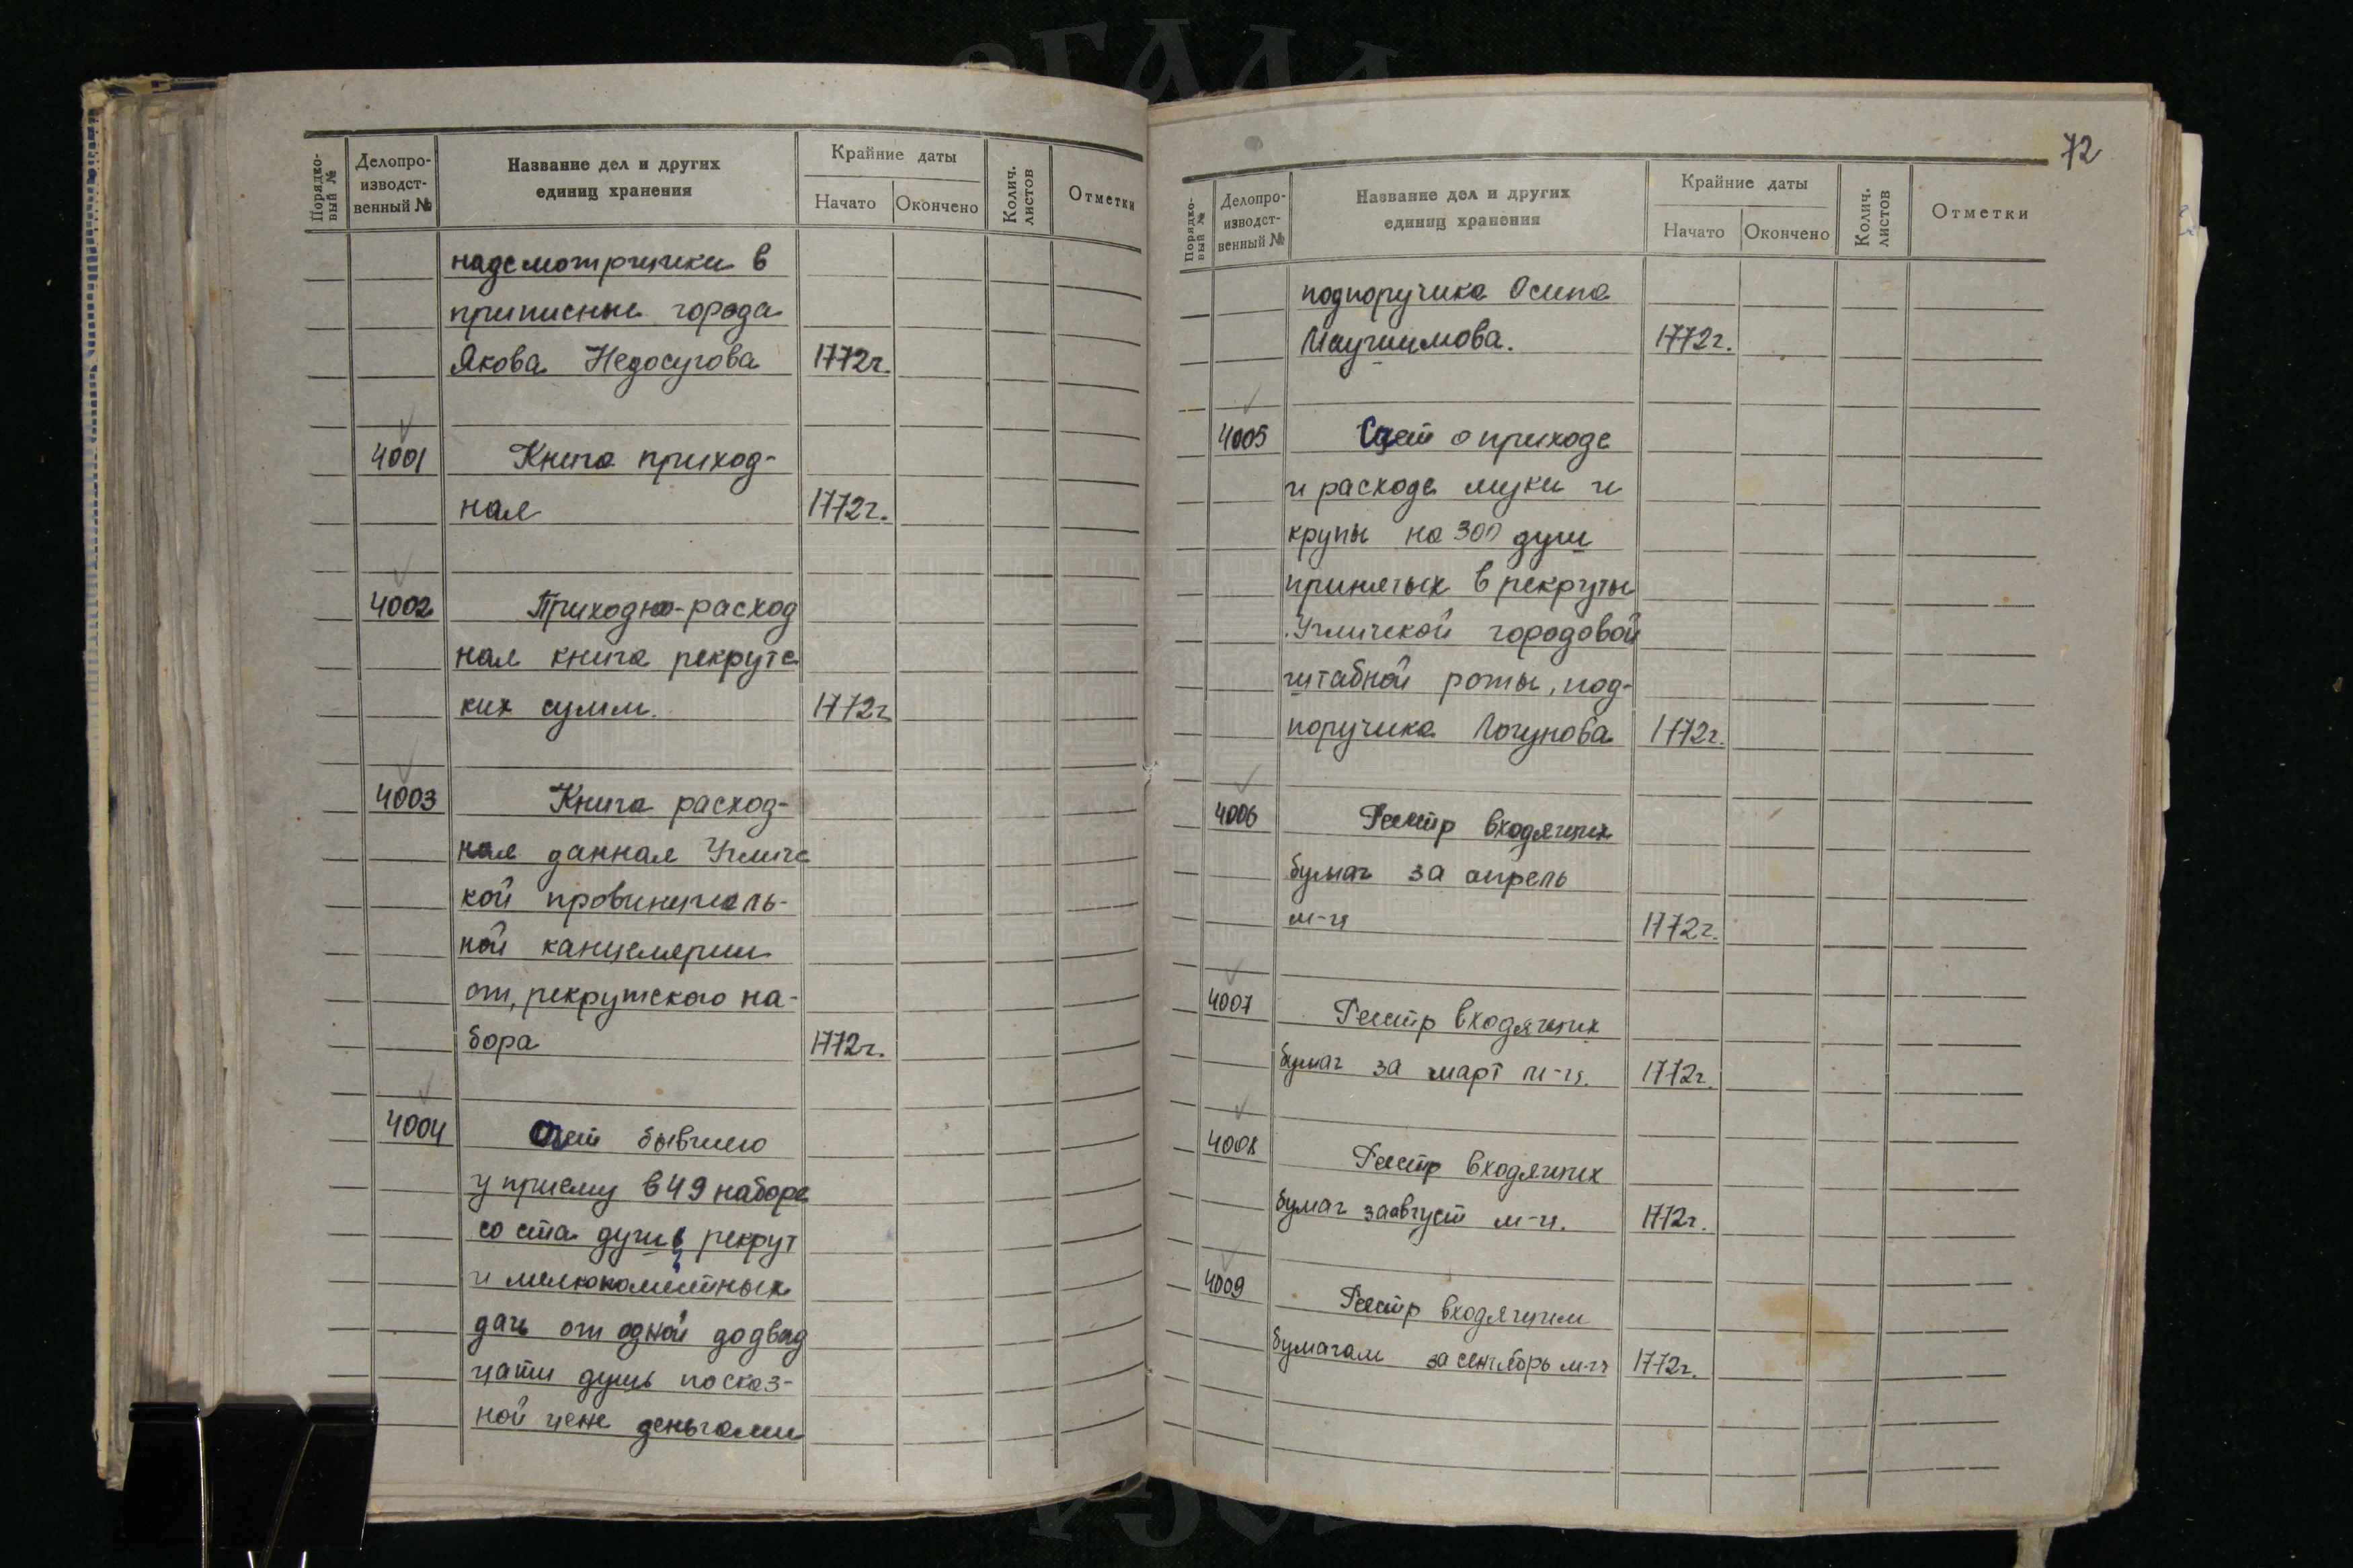 Порядко-
вый №
Делопро-
изводст-
венный №
Название дел и других
единиц хранения
Крайние даты
Начато
Окончено
Колич.
листов
Отметки
надсмотрщики в
приписные города
Якова Недосугова 1772г.
4001 Книга приход-
ная 1772г.
4002 Приходно-расход
ная книга рекрутс
ких сумм. 1772г
4003 Книга расход-
ная данная Угличс
кой провинциаль-
ной канцелярии
от, рекрутского на-
бора 1772г.
4004 Счет бывшего
у приему в 49 наборе
со ста душ рекрут
и мелкопоместных
дачь от одной додвад
цати душь по сказ-
ной цене деньгами
72
Порядко-
вый №
Делопро-
изводст-
венный №
Название дел и других
единиц хранения
Крайние даты
Начато
Окончено
Колич.
листов
Отметки
подпоручика Осипа
1772г.
4005 Счет о приходе
и расходе муки и
крупы на 300 душ
принятых в рекруты
Угличской городовой
штабной роты, под-
поручика Логунова 1772г.
4006 Реестр входящих
бумаг за апрель
м-ц 1772г.
4007 Реестр входящих
бумаг за март м-ц. 1772г.
4008 Реестр входящих
бумаг заавгуст м-ц. 1772г.
4009 Реестр входящим
бумагам за сентябрь м-ц 1772г.